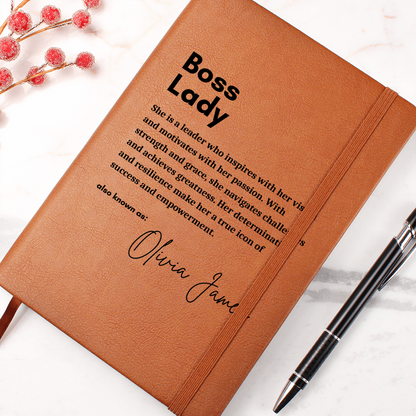 Boss
Lady
She is a leader who inspires with her vis
and motivates with her passion. With
strength and grace, she navigates challe es
and achieves greatness. Her determinati s
and resilience make her a true icon of
success and empowerment.
also known as:
Olivia Jame